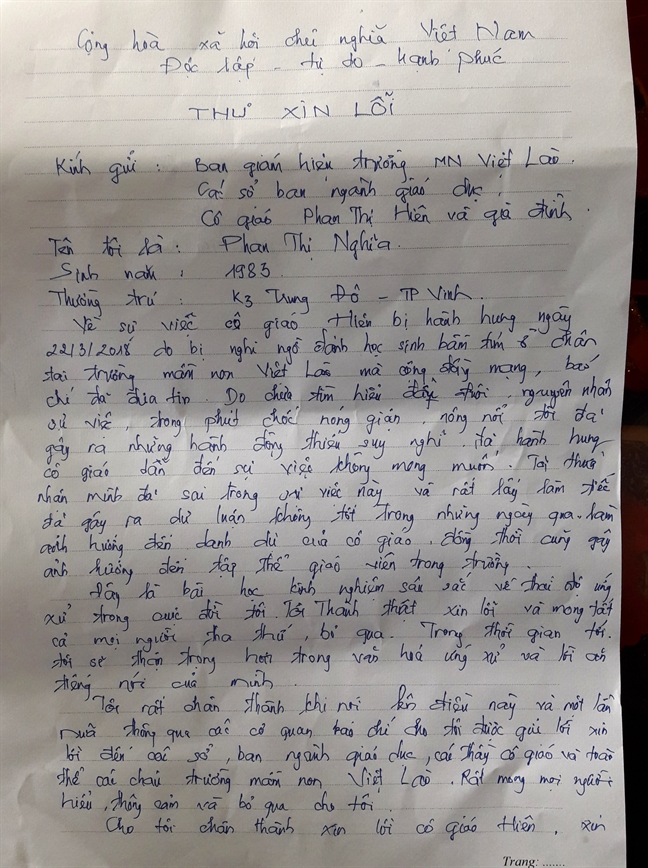 Cộng hoà xã hội chủ nghĩa Việt Nam
Độc lập - tự do - hạnh phúc
THƯ XIN LỖI
Kính gửi : Ban giám hiệu trường MN Việt Lào.
Các sở ban ngành giáo dục.
Cô giáo Phan Thị Hiền và gia đình.
Tên tôi là : Phan Thị Nghĩa.
Sinh năm : 1983.
Thường trú : K3 Trung Đô - TP Vinh.
Về sự việc cô giáo Hiền bị hành hung ngày
22/3/2018 do bị nghi ngờ đánh học sinh bầm tím ở chân
tại trường mầm non Việt Lào mà cộng đồng mạng, báo
chí đã đưa tin. Do chưa tìm hiểu nguyên nhân
sự việc, trong phút chốc nóng giận, nông nổi tôi đã
gây ra những hành động thiếu suy nghĩ, đã hành hung
cô giáo dẫn đến sự việc không mong muốn. Tôi thừa
nhận mình đã sai trong sự việc này và rất lấy làm tiếc
đã gây ra dư luận không tốt trong những ngày qua. Làm
ảnh hưởng đến danh dự của cô giáo, đồng thời cũng gây
ảnh hưởng đến tập thể giáo viên trong trường.
Đây là bài học kinh nghiệm sâu sắc về thái độ ứng
xử trong cuộc đời tôi. Tôi Thành thật xin lỗi và mong tất
cả mọi người tha thứ, bỏ qua. Trong thời gian tới.
tôi sẽ thận trọng hơn trong văn hoá ứng xử và lời ăn
tiếng nói của mình.
Tôi rất chân thành khi nói điều này và một lần
nữa thông qua các cơ quan báo chí cho tôi được gửi lời xin
lỗi đến các sở, ban ngành giáo dục, các thầy cô giáo và toàn
thể các cháu trường mầm non Việt Lào. Rất mong mọi người
hiểu, thông cảm và bỏ qua cho tôi.
Cho tôi chân thành xin lỗi cô giáo Hiền, xin
Trang: .......